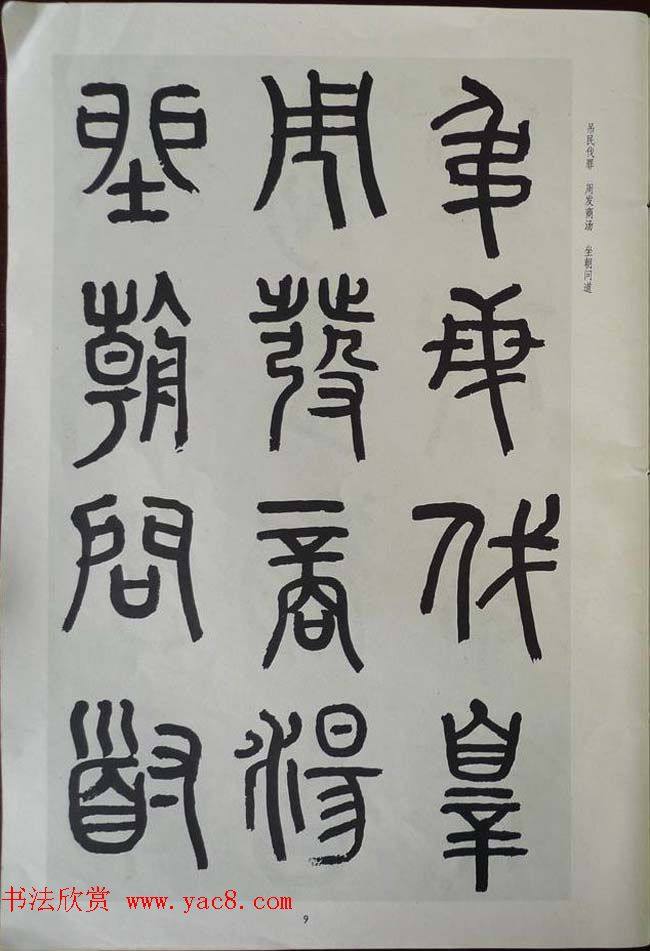 吊民伐罪 周发商汤 坐朝问道
弔民伐辠
周發商湯
坐朝問道
书法欣赏 www.yac8.com
9